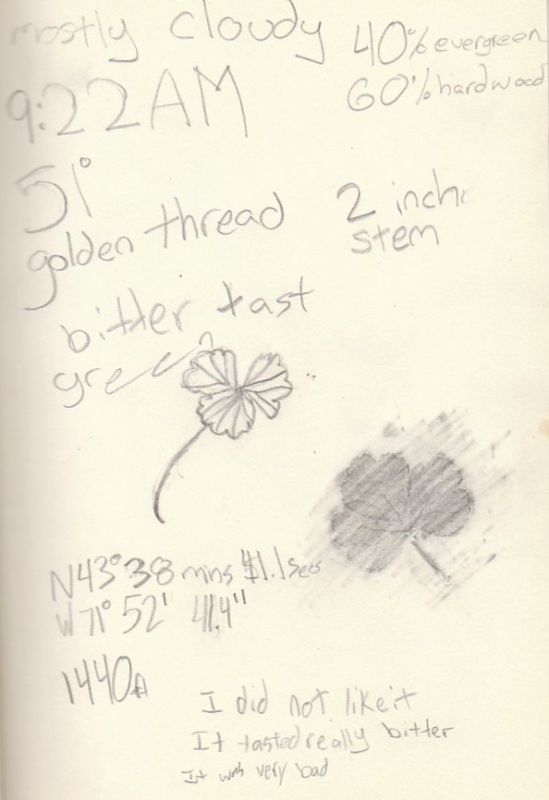 mostly cloudy
40% evergreen
60% hardwood
9:22 AM
51°
golden thread
2 inch
stem
bitter tast
green
N43° 38 mins 41.1 secs
W 71° 52' 41.4"
1440ft
I did not like it
It tasted really bitter
It was very bad